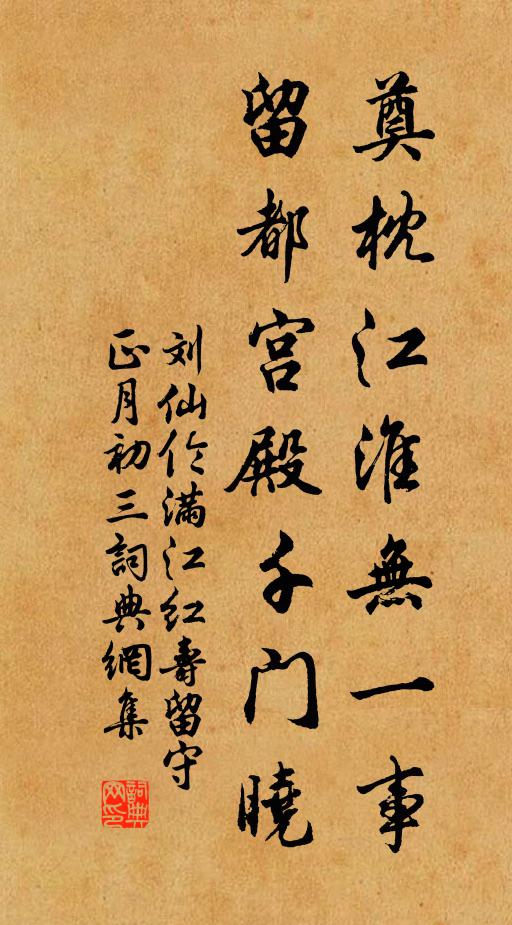 奠枕江淮無一事
留都宫殿千门曉
刘仙伦满江红壽留守
正月初三詞典網集
詞典网印